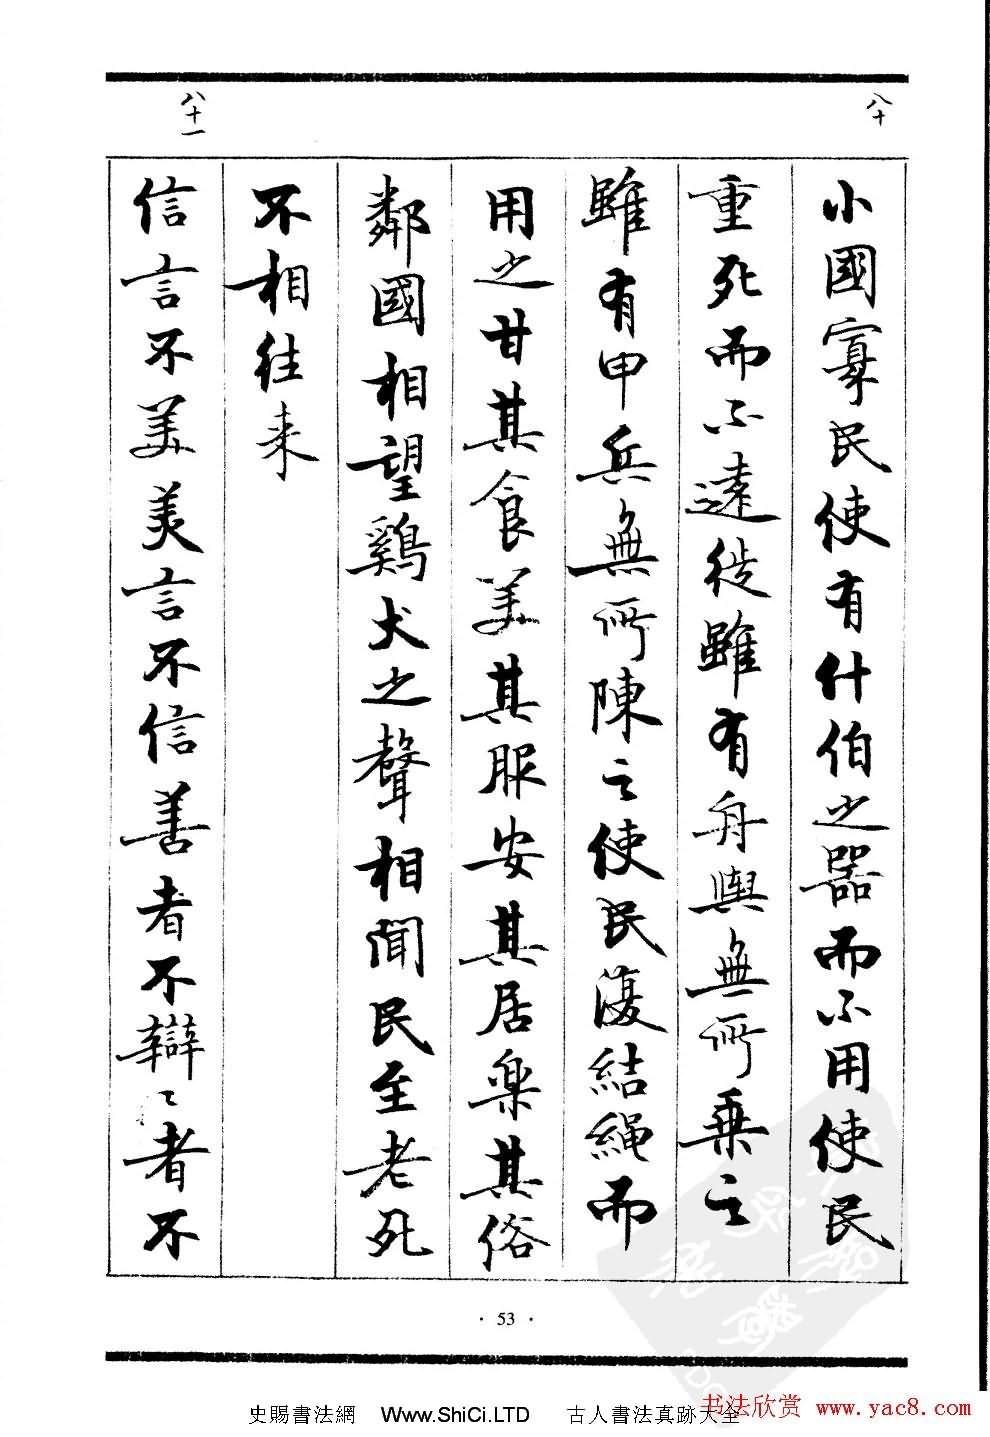 八十
小國寡民使有什伯之器而不用使民
重死而不遠徙雖有舟輿無所乗之
雖有甲兵無所陳之使民復結繩而
用之甘其食美其服安其居樂其俗
鄰國相望鷄犬之聲相聞民至老死
不相往来
八十一
信言不美美言不信善者不辯〻者不
· 53 ·
史賜書法網 Www.ShiCi.LTD 古人書法真跡大全
书法欣赏 www.yac8.com